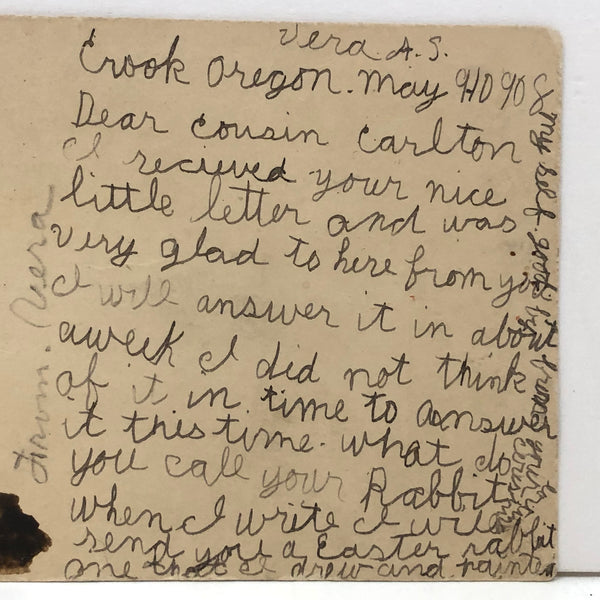 Vera A.S.
Crook Oregon. May 9 1908
Dear cousin Carlton
I recieved your nice
little letter and was
very glad to here from you
I will answer it in about
aweek I did not think
of it in time to answer
it this time. what do
you call your Rabbit
when I write I will
send you a Easter rabbit
one that I drew and painted
my self. good by from your
cousin
From. Vera